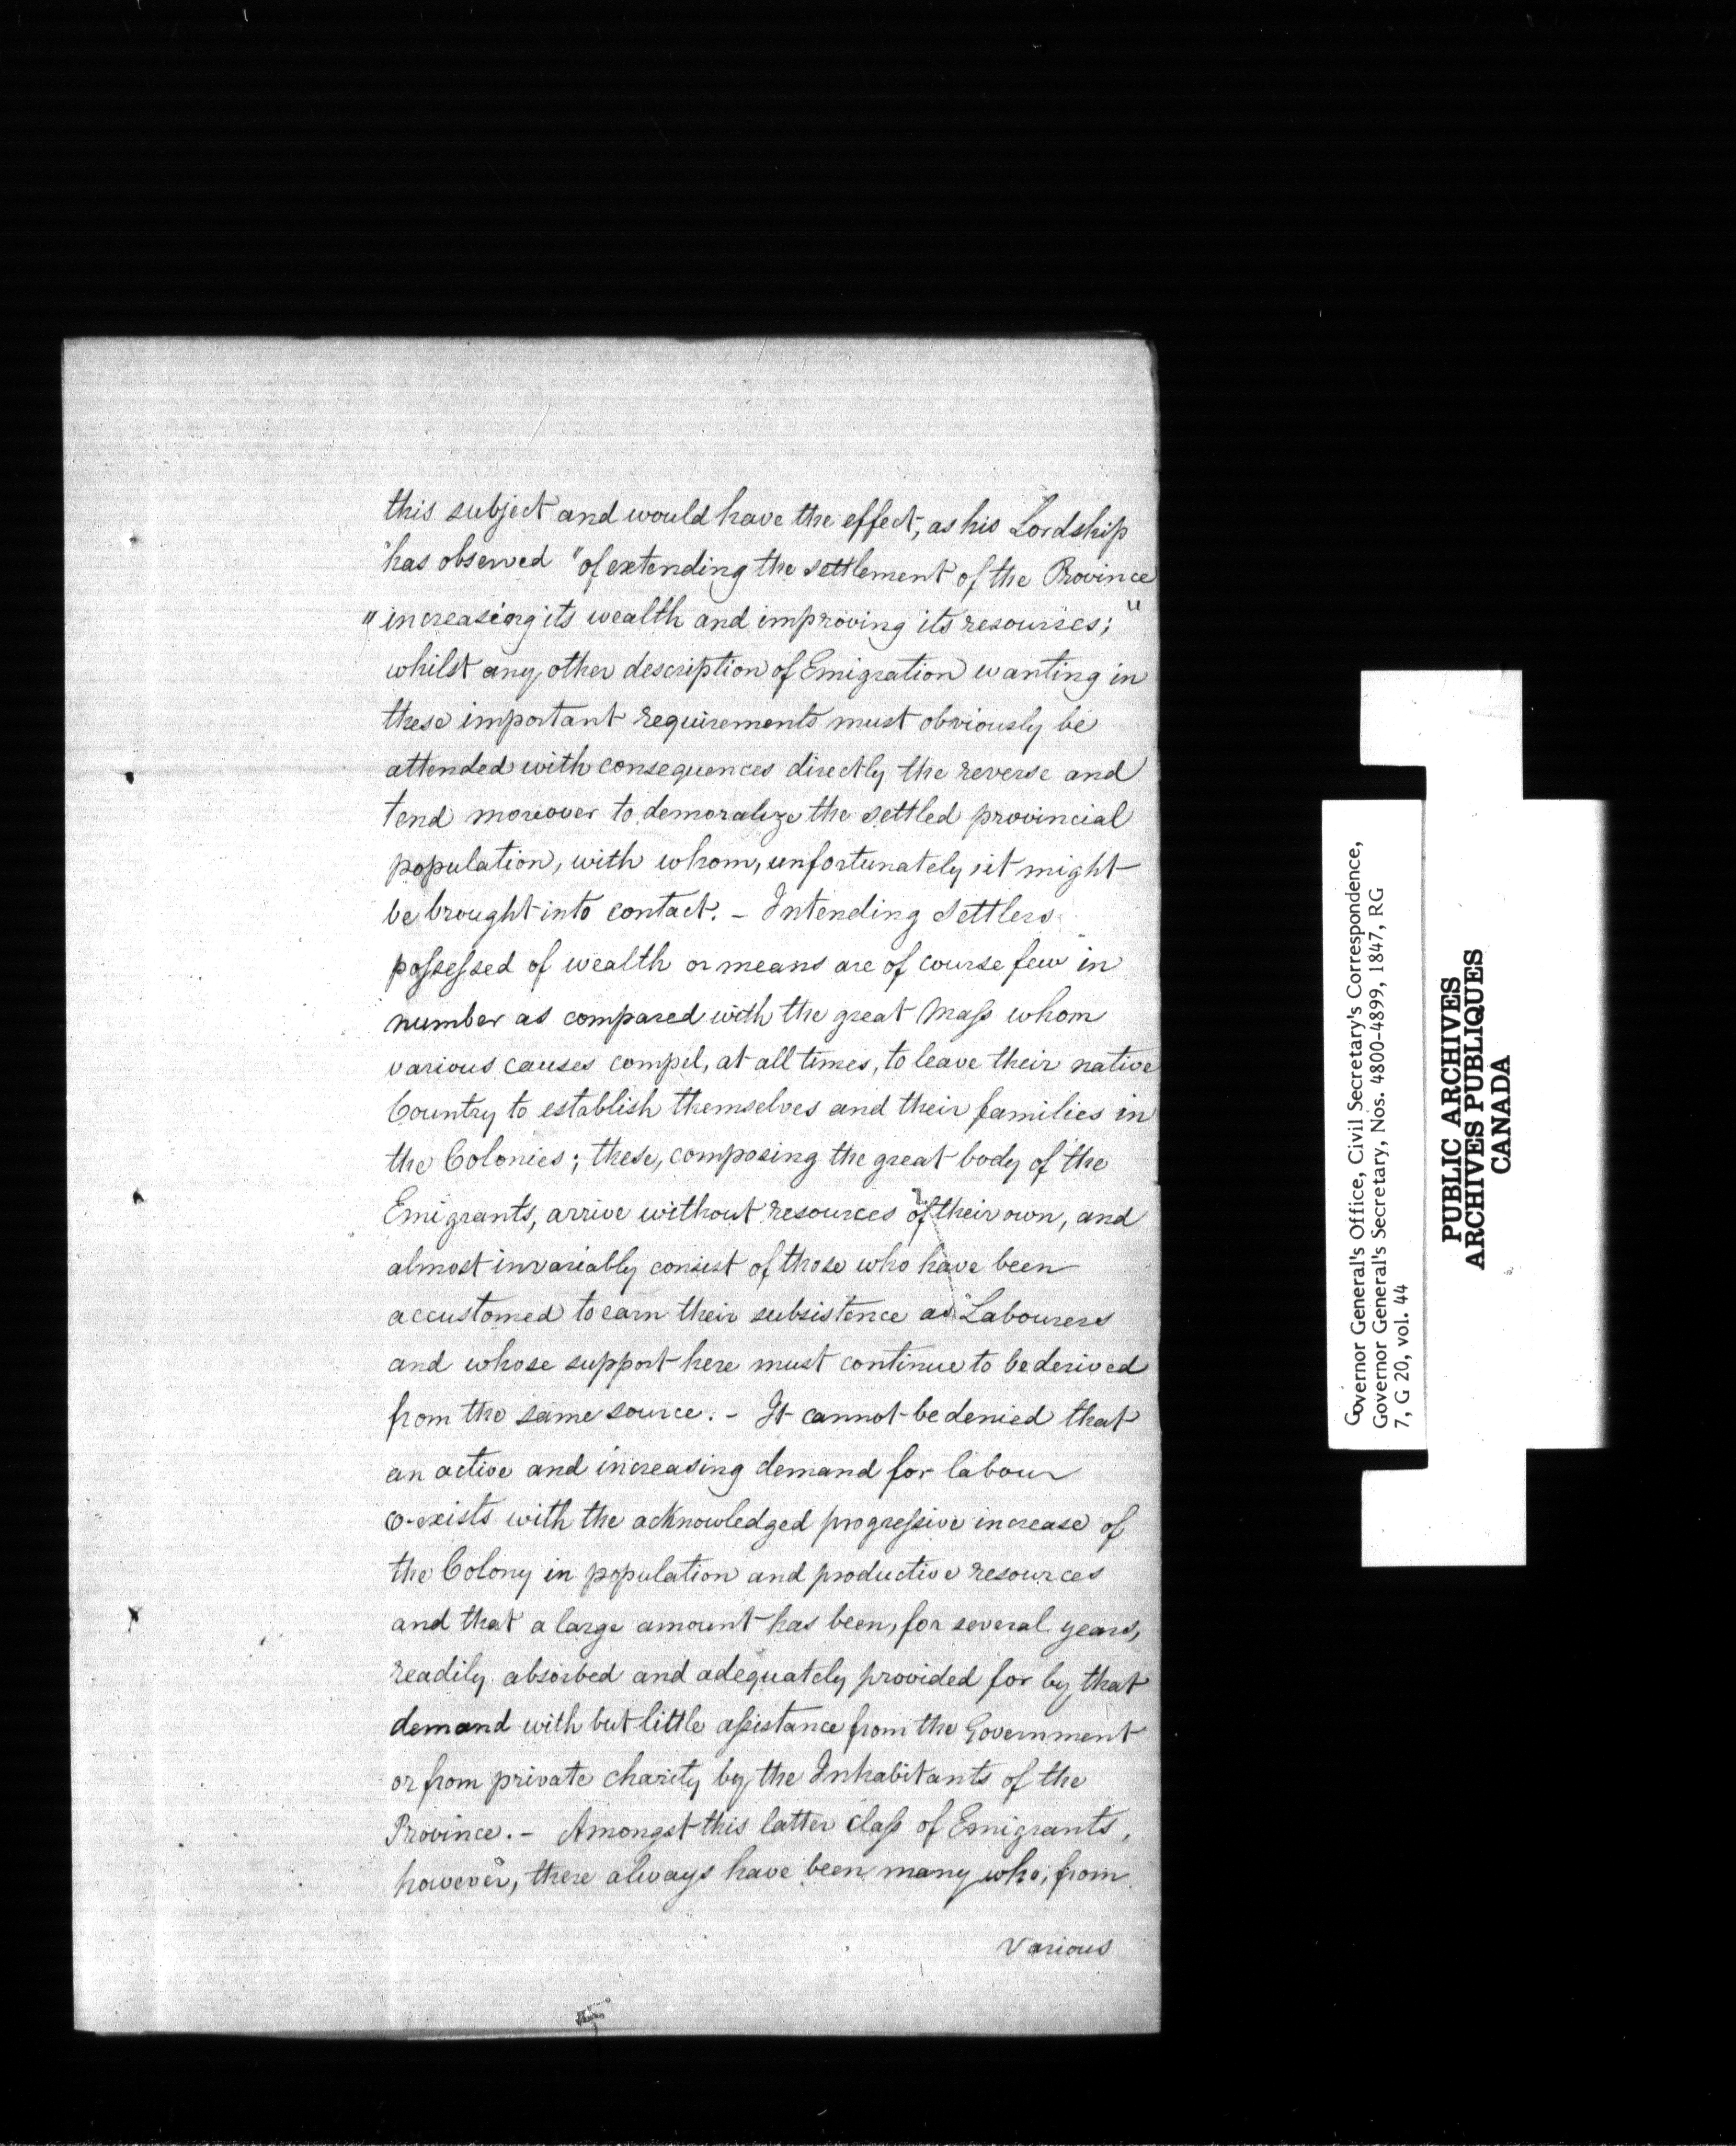 this subject and would have the effect, as his Lordship
has observed "of extending the settlement of the Province
"increasing its wealth and improving its resources;"
whilst any other description of Emigration wanting in
these important requirements must obviously be
attended with consequences directly the reverse and
tend moreover to demoralize the settled provincial
population, with whom, unfortunately, it might
be brought into contact. - Intending Settlers
possessed of wealth or means are of course few in
number as compared with the great Mass whom
various causes compel, at all times, to leave their native
Country to establish themselves and their families in
the Colonies; these, composing the great body of the
Emigrants, arrive without resources of their own, and
almost invariably consist of those who have been
accustomed to earn their subsistence as Labourers
and whose support here must continue to be derived
from the same source. - It cannot be denied that
an active and increasing demand for labour
co-exists with the acknowledged progressive increase of
the Colony in population and productive resources
and that a large amount has been, for several years,
readily absorbed and adequately provided for by that
demand with but little assistance from the Government
or from private charity by the Inhabitants of the
Province. - Amongst this latter class of Emigrants,
however, there always have been many who, from
various
Governor General's Office, Civil Secretary's Correspondence,
Governor General's Secretary, Nos. 4800-4899, 1847, RG
7, G 20, vol. 44
PUBLIC ARCHIVES
ARCHIVES PUBLIQUES
CANADA